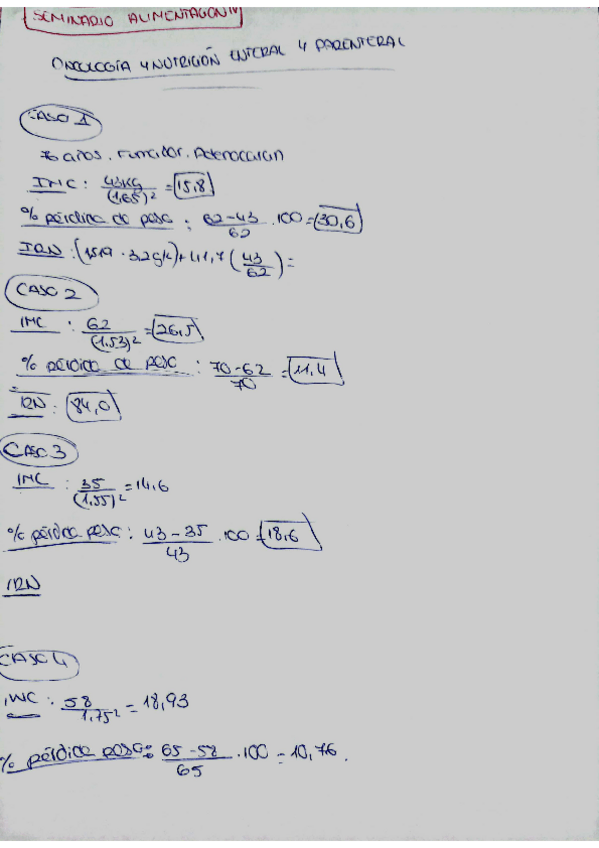 SEMINARIO ALIMENTACION IV
ONCOLOGÍA Y NUTRICIÓN ENTERAL Y PARENTERAL
CASO 1
76 años. Fumador. Adenocarcin
IMC : 43Kg/(1,65)² = 15,8
% pérdida de peso : 62-43/62 . 100 = 30,6
IRN : (1519 . 32g/L) + 41,7 (43/62) =
CASO 2
IMC : 62/(1.53)² = 26,5
% pérdida de peso : 70-62/70 = 11,4
IRN : 84,0
CASO 3
IMC : 35/(1,55)² = 14,6
% pérdida peso : 43-35/43 . 100 = 18,6
IRN
CASO 4
IMC : 58/1,75² = 18,93
% pérdida peso : 65-58/65 . 100 = 10,76.